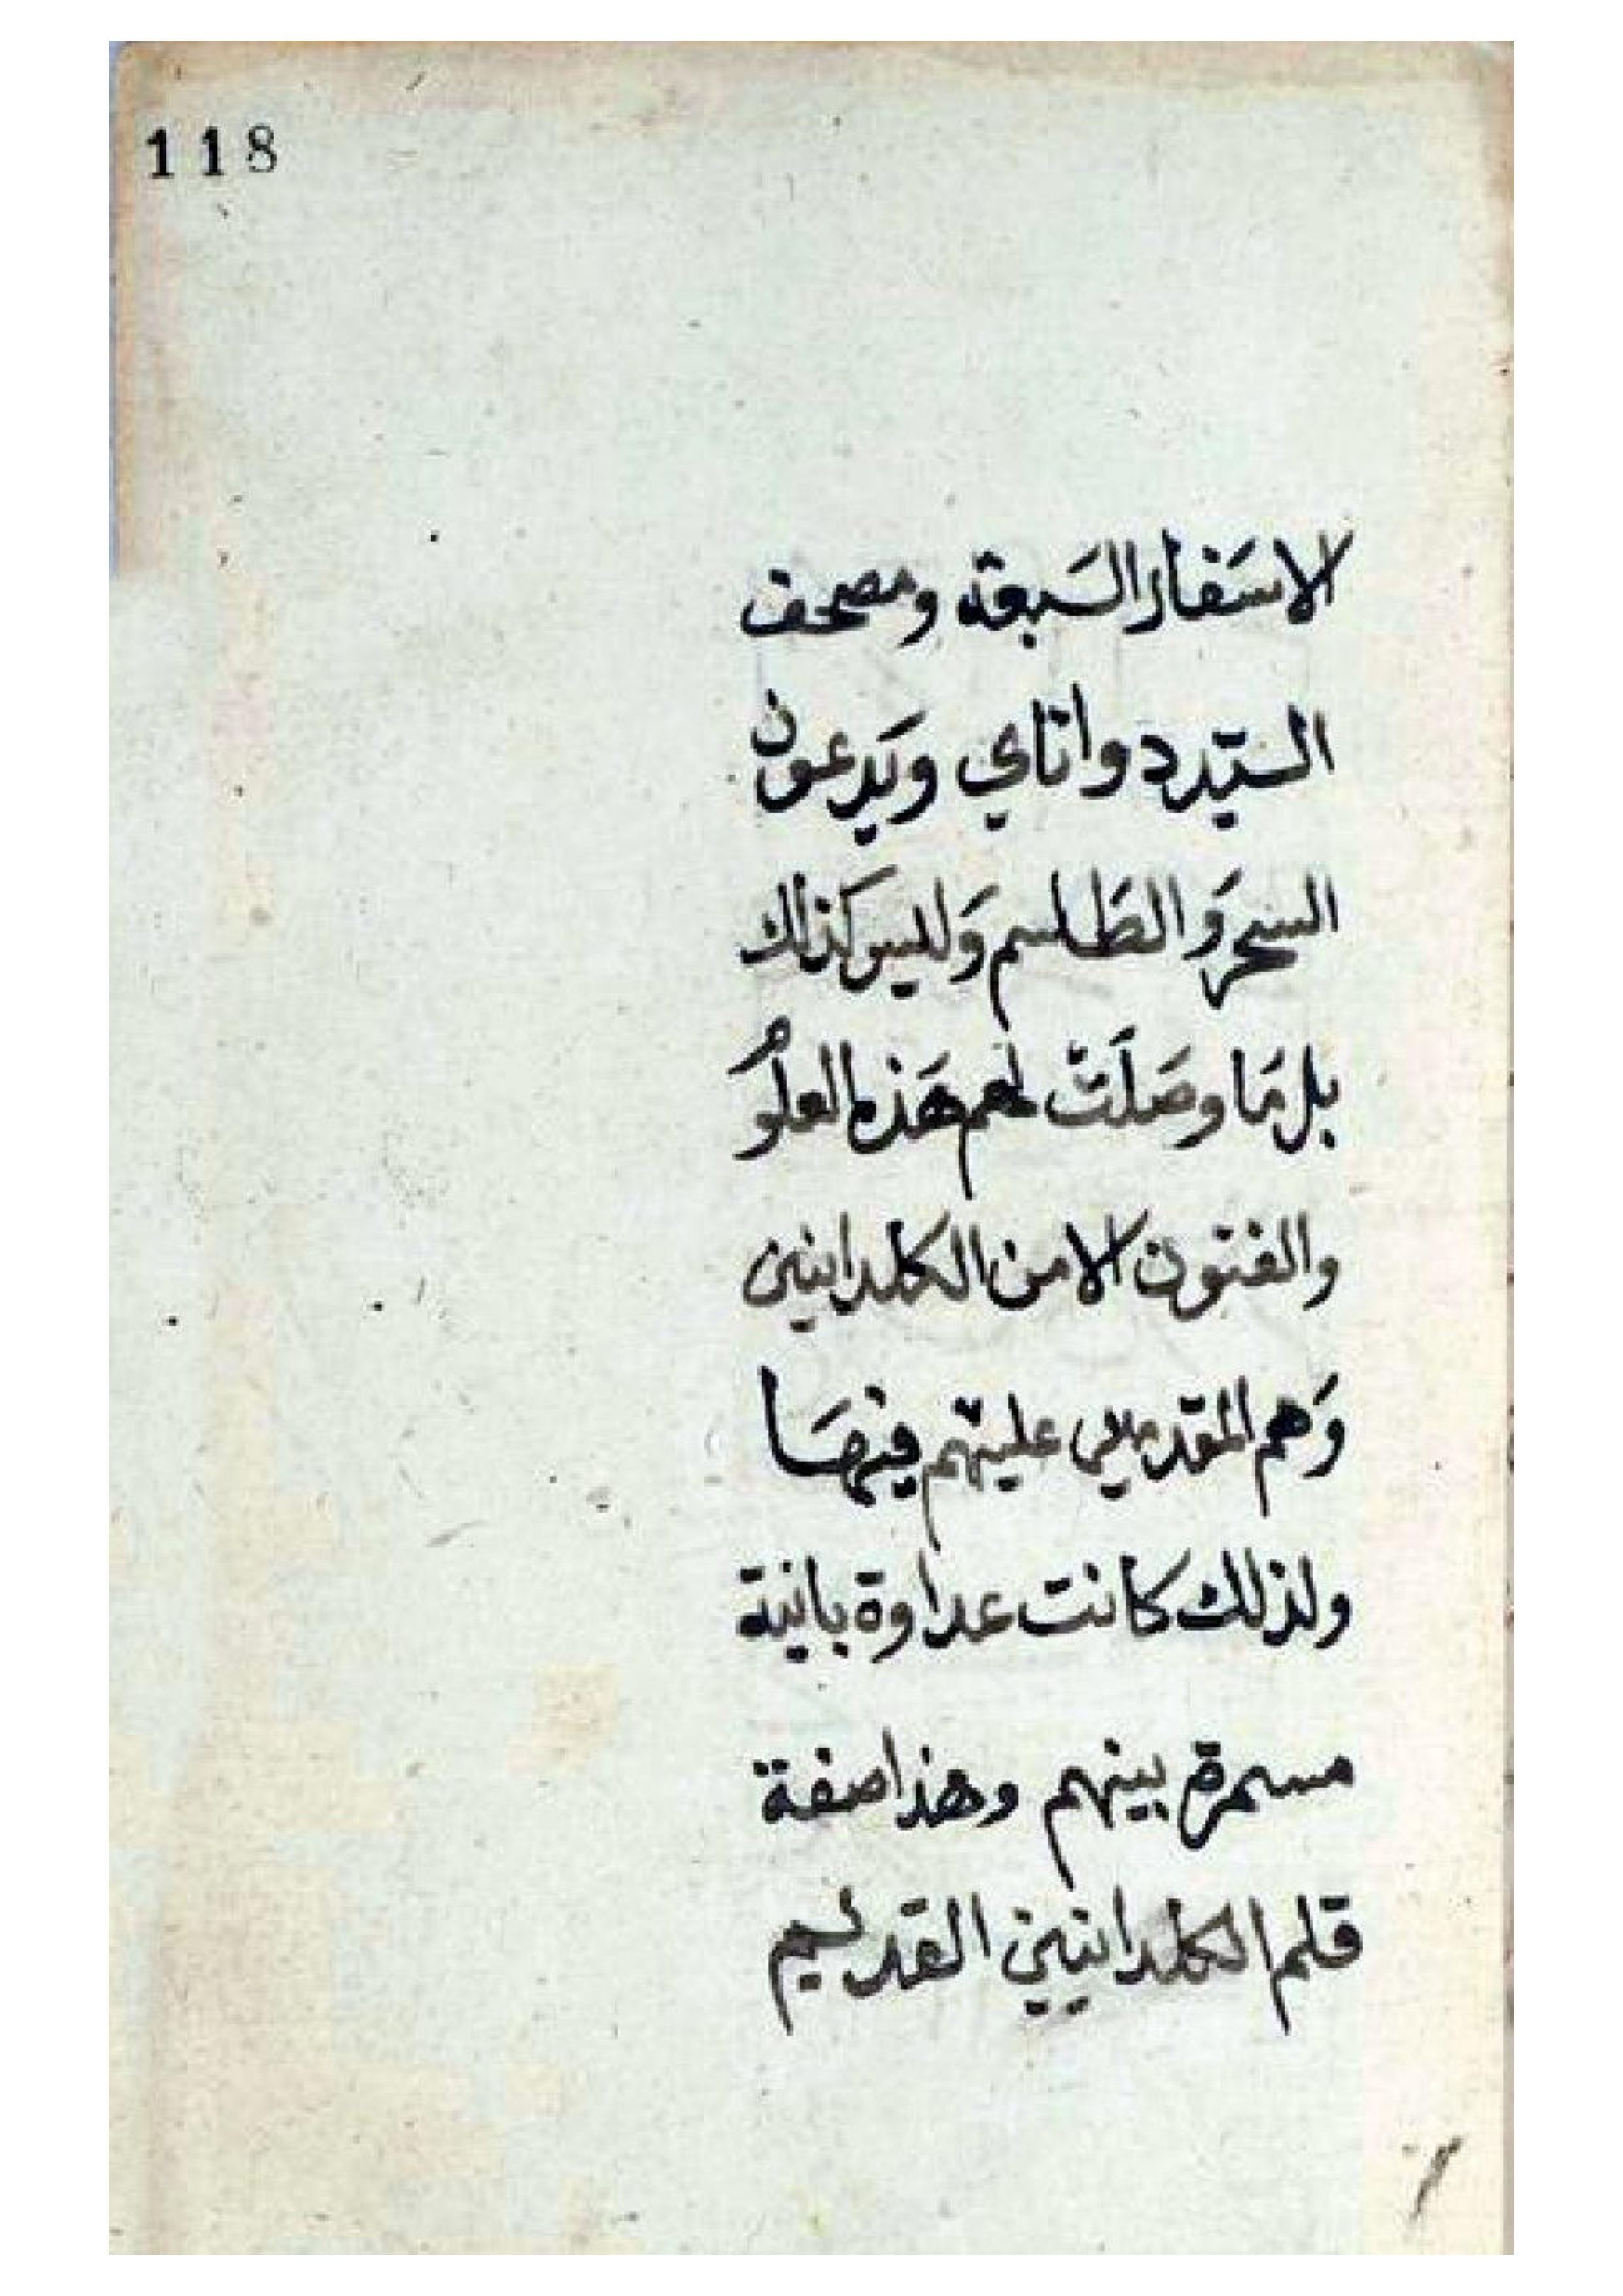 118
الاسَفار السَبعة ومصحف
السيدد واناي ويَدعون
السحرَ والطَلسم وَليس كذلك
بل مَا وصَلَت لهم هَذه العلوُم
والفنون الا من الكلدانين
وَهم المقدمين عليهم فيهَا
ولذلك كانت عداوة بانية
مسمرة بينهم وهذا صفة
قلم الكلدانيين القديم